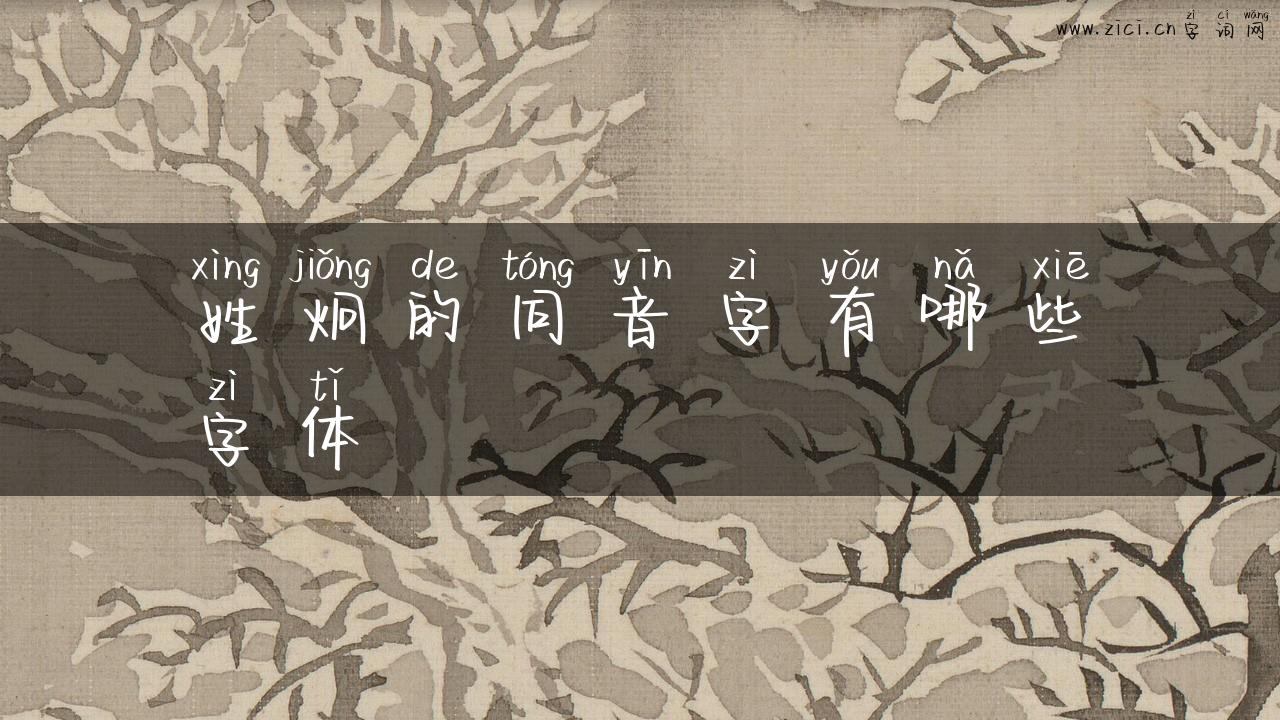 zì cí wǎng
www.zici.cn字词网
xìng jiǒng de tóng yīn zì yǒu nǎ xiē
姓炯的同音字有哪些
zì tǐ
字体